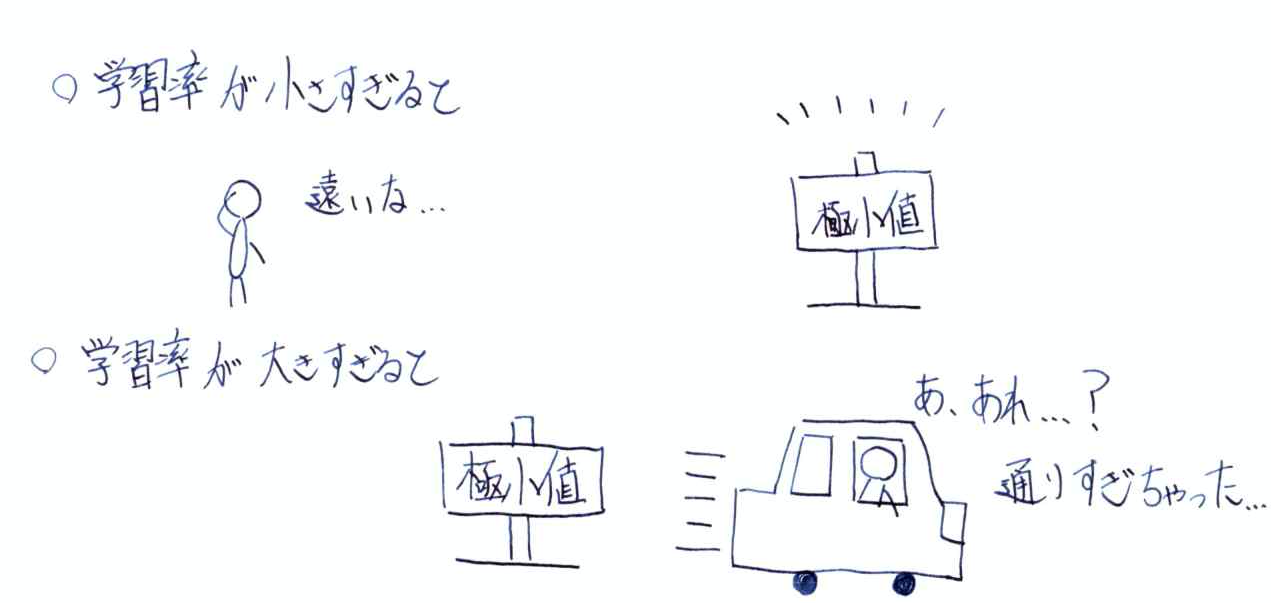 ○ 学習率が小さすぎると
遠いな...
極小値
○ 学習率が大きすぎると
極小値
あ、あれ...?
通りすぎちゃった...